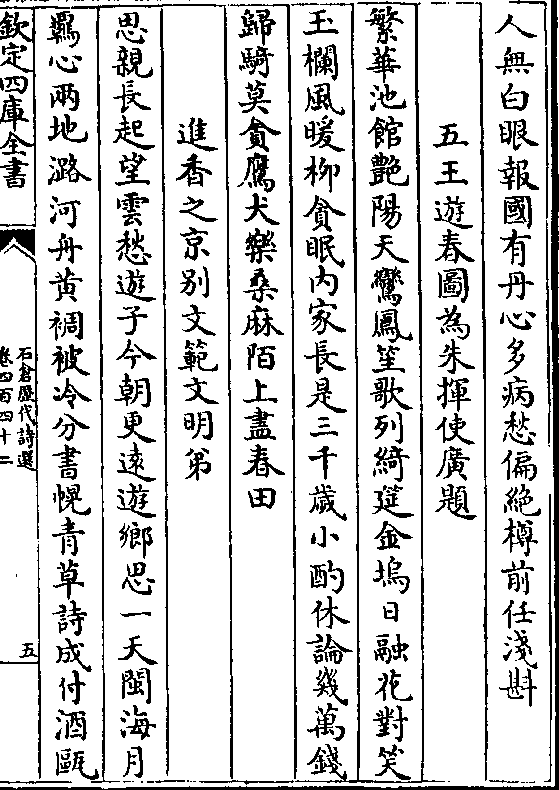 人無白眼報國有丹心多病愁偏絶樽前任淺斟
五王遊春圖為朱揮使廣題
繁華池館艷陽天鸞鳳笙歌列綺筵金塢日融花對笑
玉欄風暖柳貪眠内家長是三千歲小酌休論幾萬錢
歸騎莫貪鷹犬樂桑麻陌上盡春田
進香之京别文範文明弟
思親長起望雲愁遊子今朝更遠遊鄉思一天閩海月
羈心兩地潞河舟黄裯被冷分書幌青草詩成付酒甌
欽定四庫全書
石倉歷代詩選
卷四百四十二
五